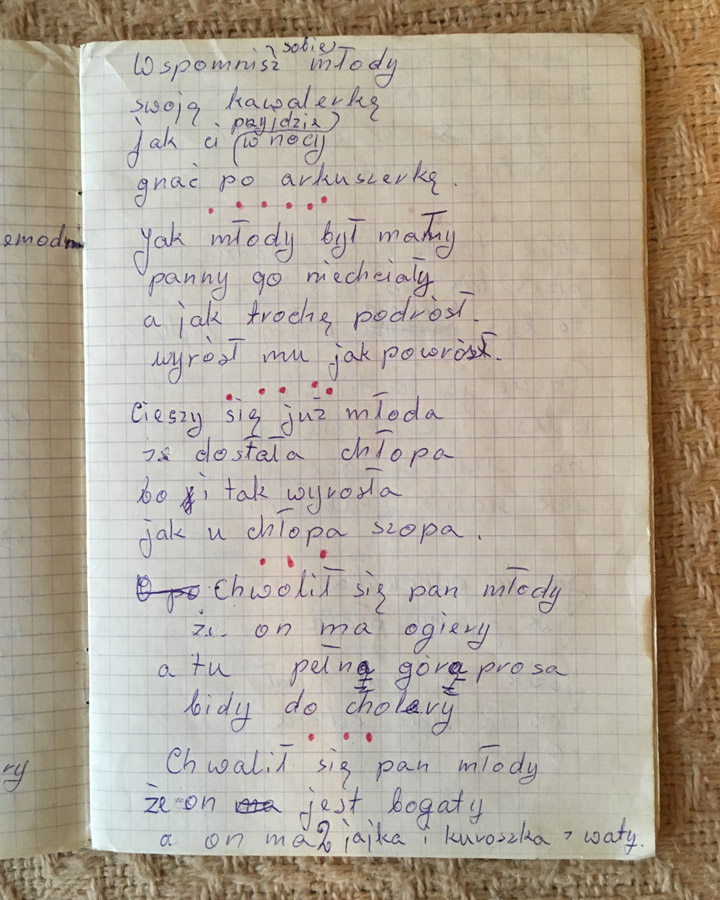 Wspomnisz sobie młody
swoją kawalerkę
jak ci przyjdzie w nocy
gnać po arkuszerkę.
Jak młody był mały
panny go niechciały
a jak trochę podrósł.
wyrósł mu jak powrósł.
Cieszy się już młoda
że dostała chłopa
bo ji tak wyrosła
jak u chłopa szopa.
Chwolił się pan młody
że on ma ogiery
a tu pełną górą prosa
bidy do cholery
Chwalił się pan młody
że on jest bogaty
a on ma 2 jajka i kuroszka z waty.